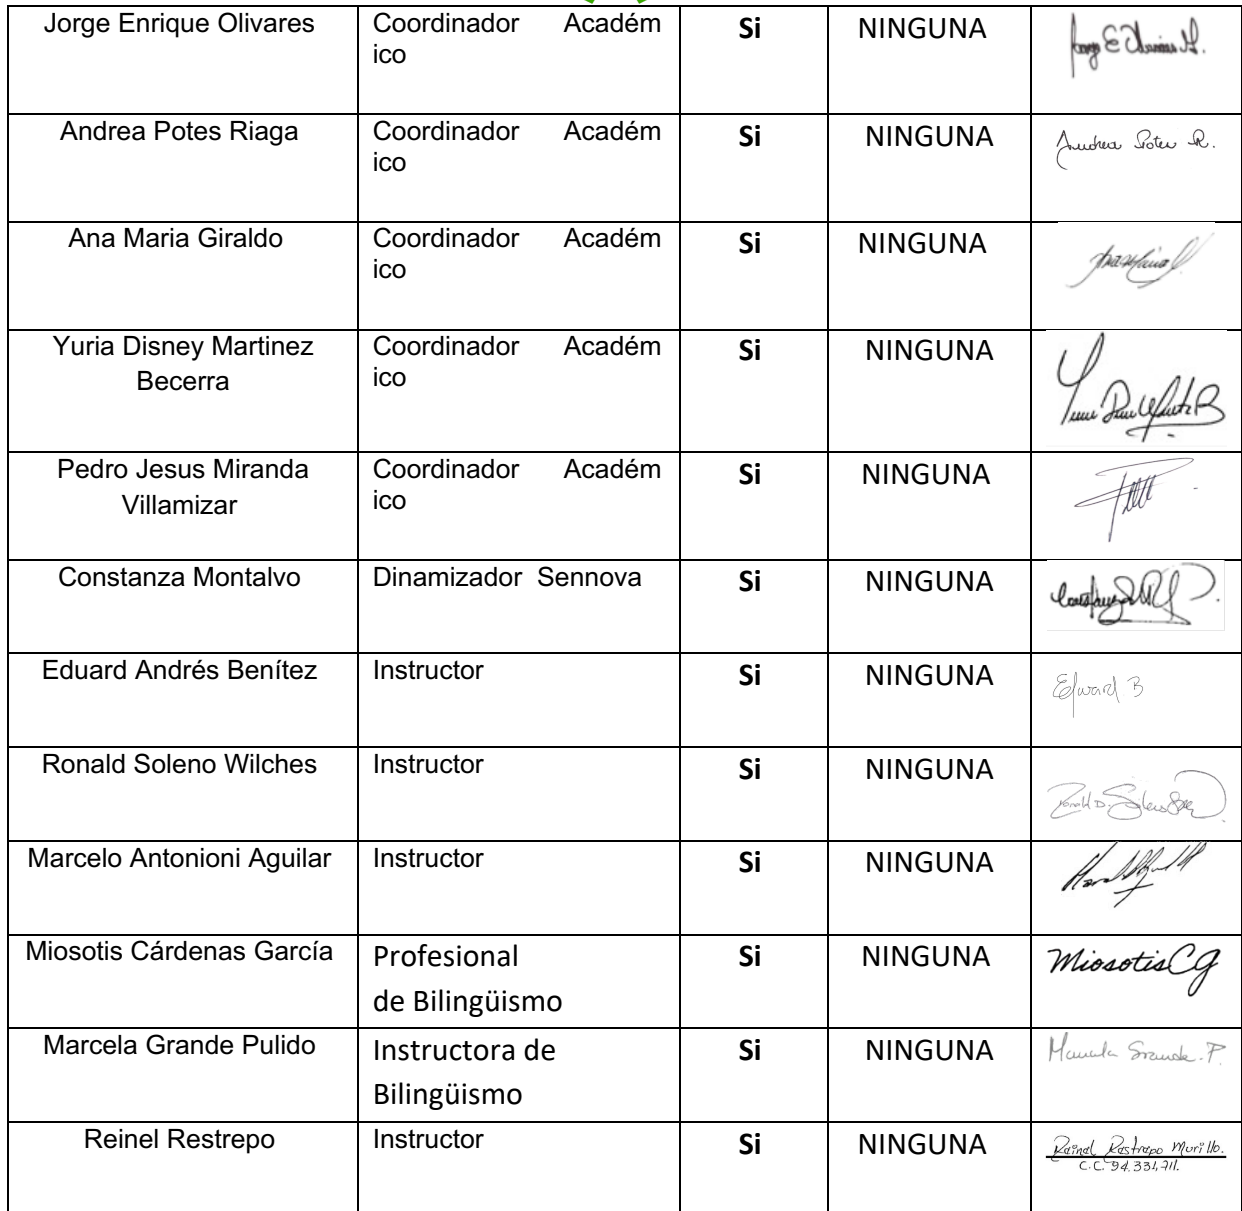 Jorge Enrique Olivares Coordinador Académ Si NINGUNA Jorge E Olivares M.
ico
Andrea Potes Riaga Coordinador Académ Si NINGUNA Andrea Potes R.
ico
Ana Maria Giraldo Coordinador Académ Si NINGUNA
ico
Yuria Disney Martinez Coordinador Académ Si NINGUNA
Becerra ico
Pedro Jesus Miranda Coordinador Académ Si NINGUNA
Villamizar ico
Constanza Montalvo Dinamizador Sennova Si NINGUNA
Eduard Andrés Benítez Instructor Si NINGUNA Edward B
Ronald Soleno Wilches Instructor Si NINGUNA
Marcelo Antonioni Aguilar Instructor Si NINGUNA
Miosotis Cárdenas García Profesional Si NINGUNA Miosotis CG
de Bilingüismo
Marcela Grande Pulido Instructora de Si NINGUNA Marcela Grande. P.
Bilingüismo
Reinel Restrepo Instructor Si NINGUNA Reinel Restrepo Murillo.
C.C. 94.331.711.